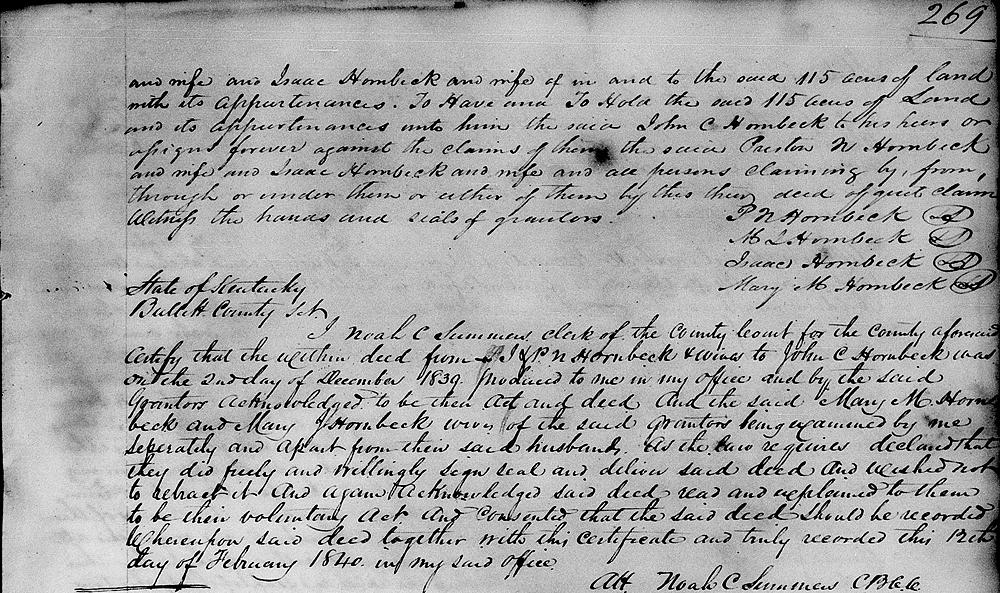 269
and wife and Isaac Hornbeck and wife of in and to the said 115 acres of land
with its appurtenances. To Have and To Hold the said 115 acres of Land
and its appurtenances unto him the said John C Hornbeck to his heirs or
assigns forever against the claims of them the said Preston N Hornbeck
and wife and Isaac Hornbeck and wife and all persons claiming by, from,
through or under them or either of them by this their deed of quit claim
Witness the hands and seals of grantors.
P N Hornbeck
M L Hornbeck
Isaac Hornbeck
Mary M Hornbeck
State of Kentucky
Bullitt County Sct
I Noah C Summers clerk of the County Court for the County aforesaid
certify that the within deed from I & P N Hornbeck & wives to John C Hornbeck was
on the 2nd day of December 1839 produced to me in my office and by the said
Grantors acknowledged to be their Act and deed And the said Mary M Horn
beck and Mary Hornbeck wives of the said Grantors being examined by me
seperately and apart from their said husbands, As the law requires declared that
they did freely and willingly sign seal and deliver said deed And wished not
to retract it And again Acknowledged said deed read and explained to them
to be their voluntary Act And consented that the said deed should be recorded
Whereupon said deed together with this certificate and truly recorded this 12th
day of February 1840. in my said office.
Att. Noah C Summers C B C C